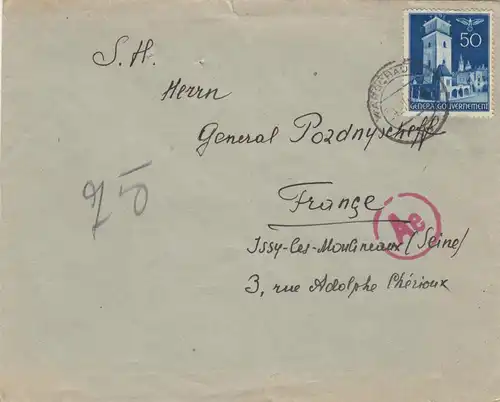 S. H.
Herrn
General Pozdnyscheff
France
Issy-les-Moulineaux (Seine)
3, rue Adolphe Chérioux
25
50
GENERALGOUVERNEMENT
Ae